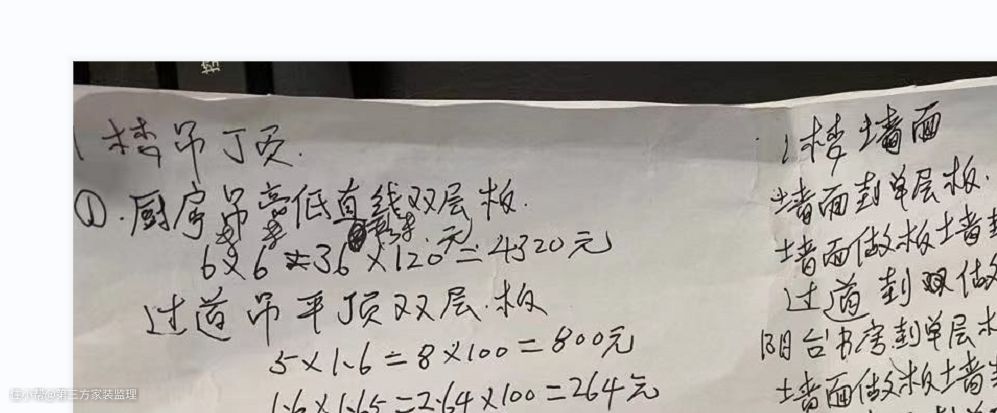 1楼吊丁页.
①.厨房吊高低直线双层板.
6×6=36×120元=4320元
过道吊平顶双层.板
5×1.6=8×100=800元
1.6×1.65=2.64×100=264元
1楼墙面
墙面封单层板.
墙面做板墙
过道封双做
阳台书房封单层
墙面做板墙
住小帮@第三方家装监理